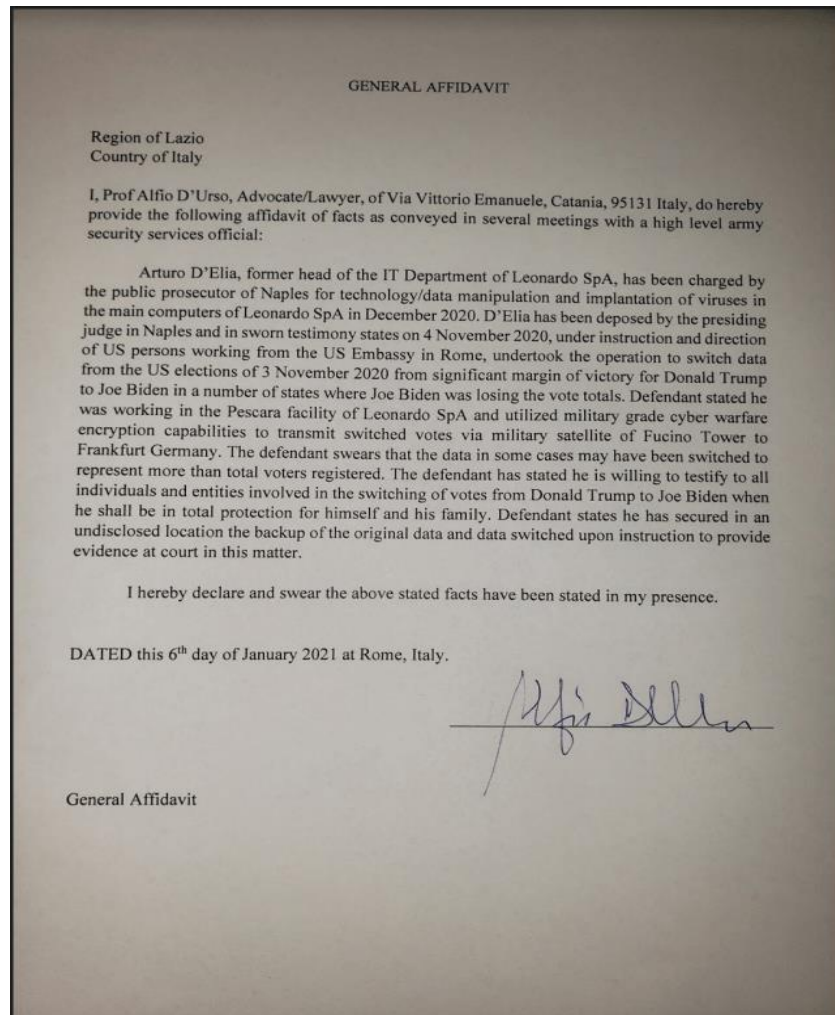 GENERAL AFFIDAVIT
Region of Lazio
Country of Italy
I, Prof Alfio D'Urso, Advocate/Lawyer, of Via Vittorio Emanuele, Catania, 95131 Italy, do hereby
provide the following affidavit of facts as conveyed in several meetings with a high level army
security services official:
Arturo D'Elia, former head of the IT Department of Leonardo SpA, has been charged by
the public prosecutor of Naples for technology/data manipulation and implantation of viruses in
the main computers of Leonardo SpA in December 2020. D'Elia has been deposed by the presiding
judge in Naples and in sworn testimony states on 4 November 2020, under instruction and direction
of US persons working from the US Embassy in Rome, undertook the operation to switch data
from the US elections of 3 November 2020 from significant margin of victory for Donald Trump
to Joe Biden in a number of states where Joe Biden was losing the vote totals. Defendant stated he
was working in the Pescara facility of Leonardo SpA and utilized military grade cyber warfare
encryption capabilities to transmit switched votes via military satellite of Fucino Tower to
Frankfurt Germany. The defendant swears that the data in some cases may have been switched to
represent more than total voters registered. The defendant has stated he is willing to testify to all
individuals and entities involved in the switching of votes from Donald Trump to Joe Biden when
he shall be in total protection for himself and his family. Defendant states he has secured in an
undisclosed location the backup of the original data and data switched upon instruction to provide
evidence at court in this matter.
I hereby declare and swear the above stated facts have been stated in my presence.
DATED this 6th day of January 2021 at Rome, Italy.
General Affidavit